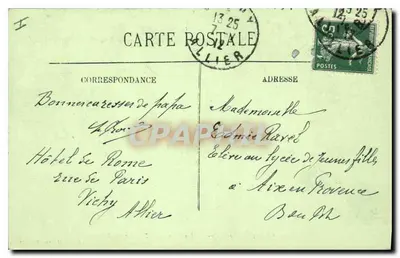 13 25
12
ALLIER
CARTE POSTALE
CORRESPONDANCE
ADRESSE
5
POSTES
Bonnes caresses de papa
Hôtel de Rome
rue de Paris
Vichy
Allier
Mademoiselle
Ravel
Elève au lycée de Jeunes filles
à Aix en Provence
CPARAMA